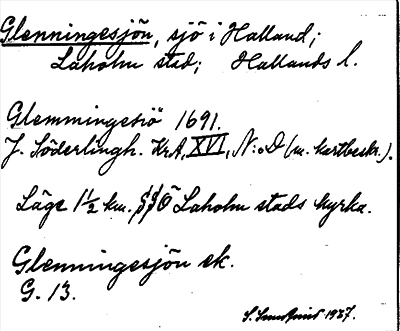 Glenningesjön, sjö i Halland;
Laholm stad; Hallands l.
Glemmingesiö 1691.
J. Söderlingh. Kr.A, XVI, N:o D (m. kartbeskr.).
Läge 1 1/2 km. SSÖ Laholm stads kyrka.
Glenningesjön ek.
G. 13.
1927.